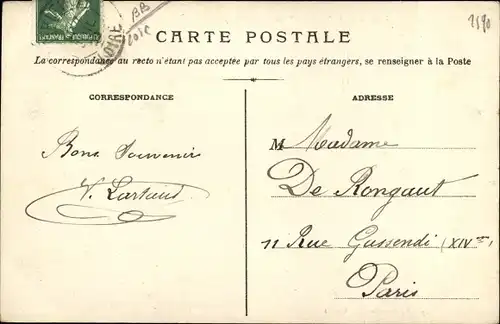 2590
BB
LOIRE
CARTE POSTALE
La correspondance au recto n'étant pas acceptée par tous les pays étrangers, se renseigner à la Poste
CORRESPONDANCE
ADRESSE
Bons Souvenirs
V. Lartaud
M Madame
De Rongaut
11 Rue Gassendi (XIVe)
Paris